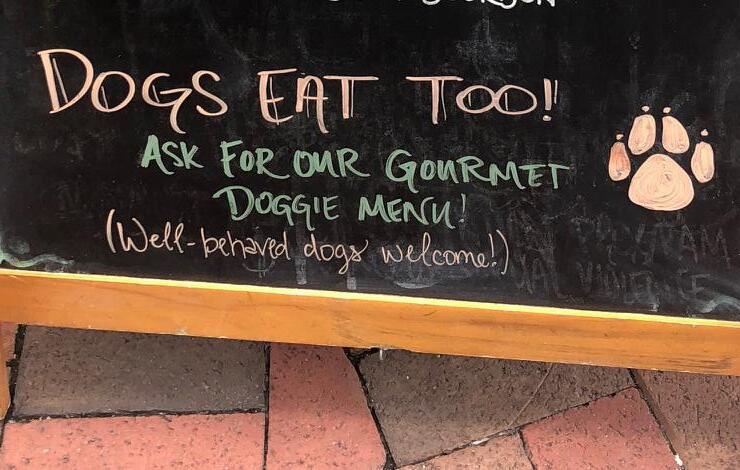 DOGS EAT TOO!!
ASK FOR OUR GOURMET
DOGGIE MENU!
(Well-behaved dogs welcome!)